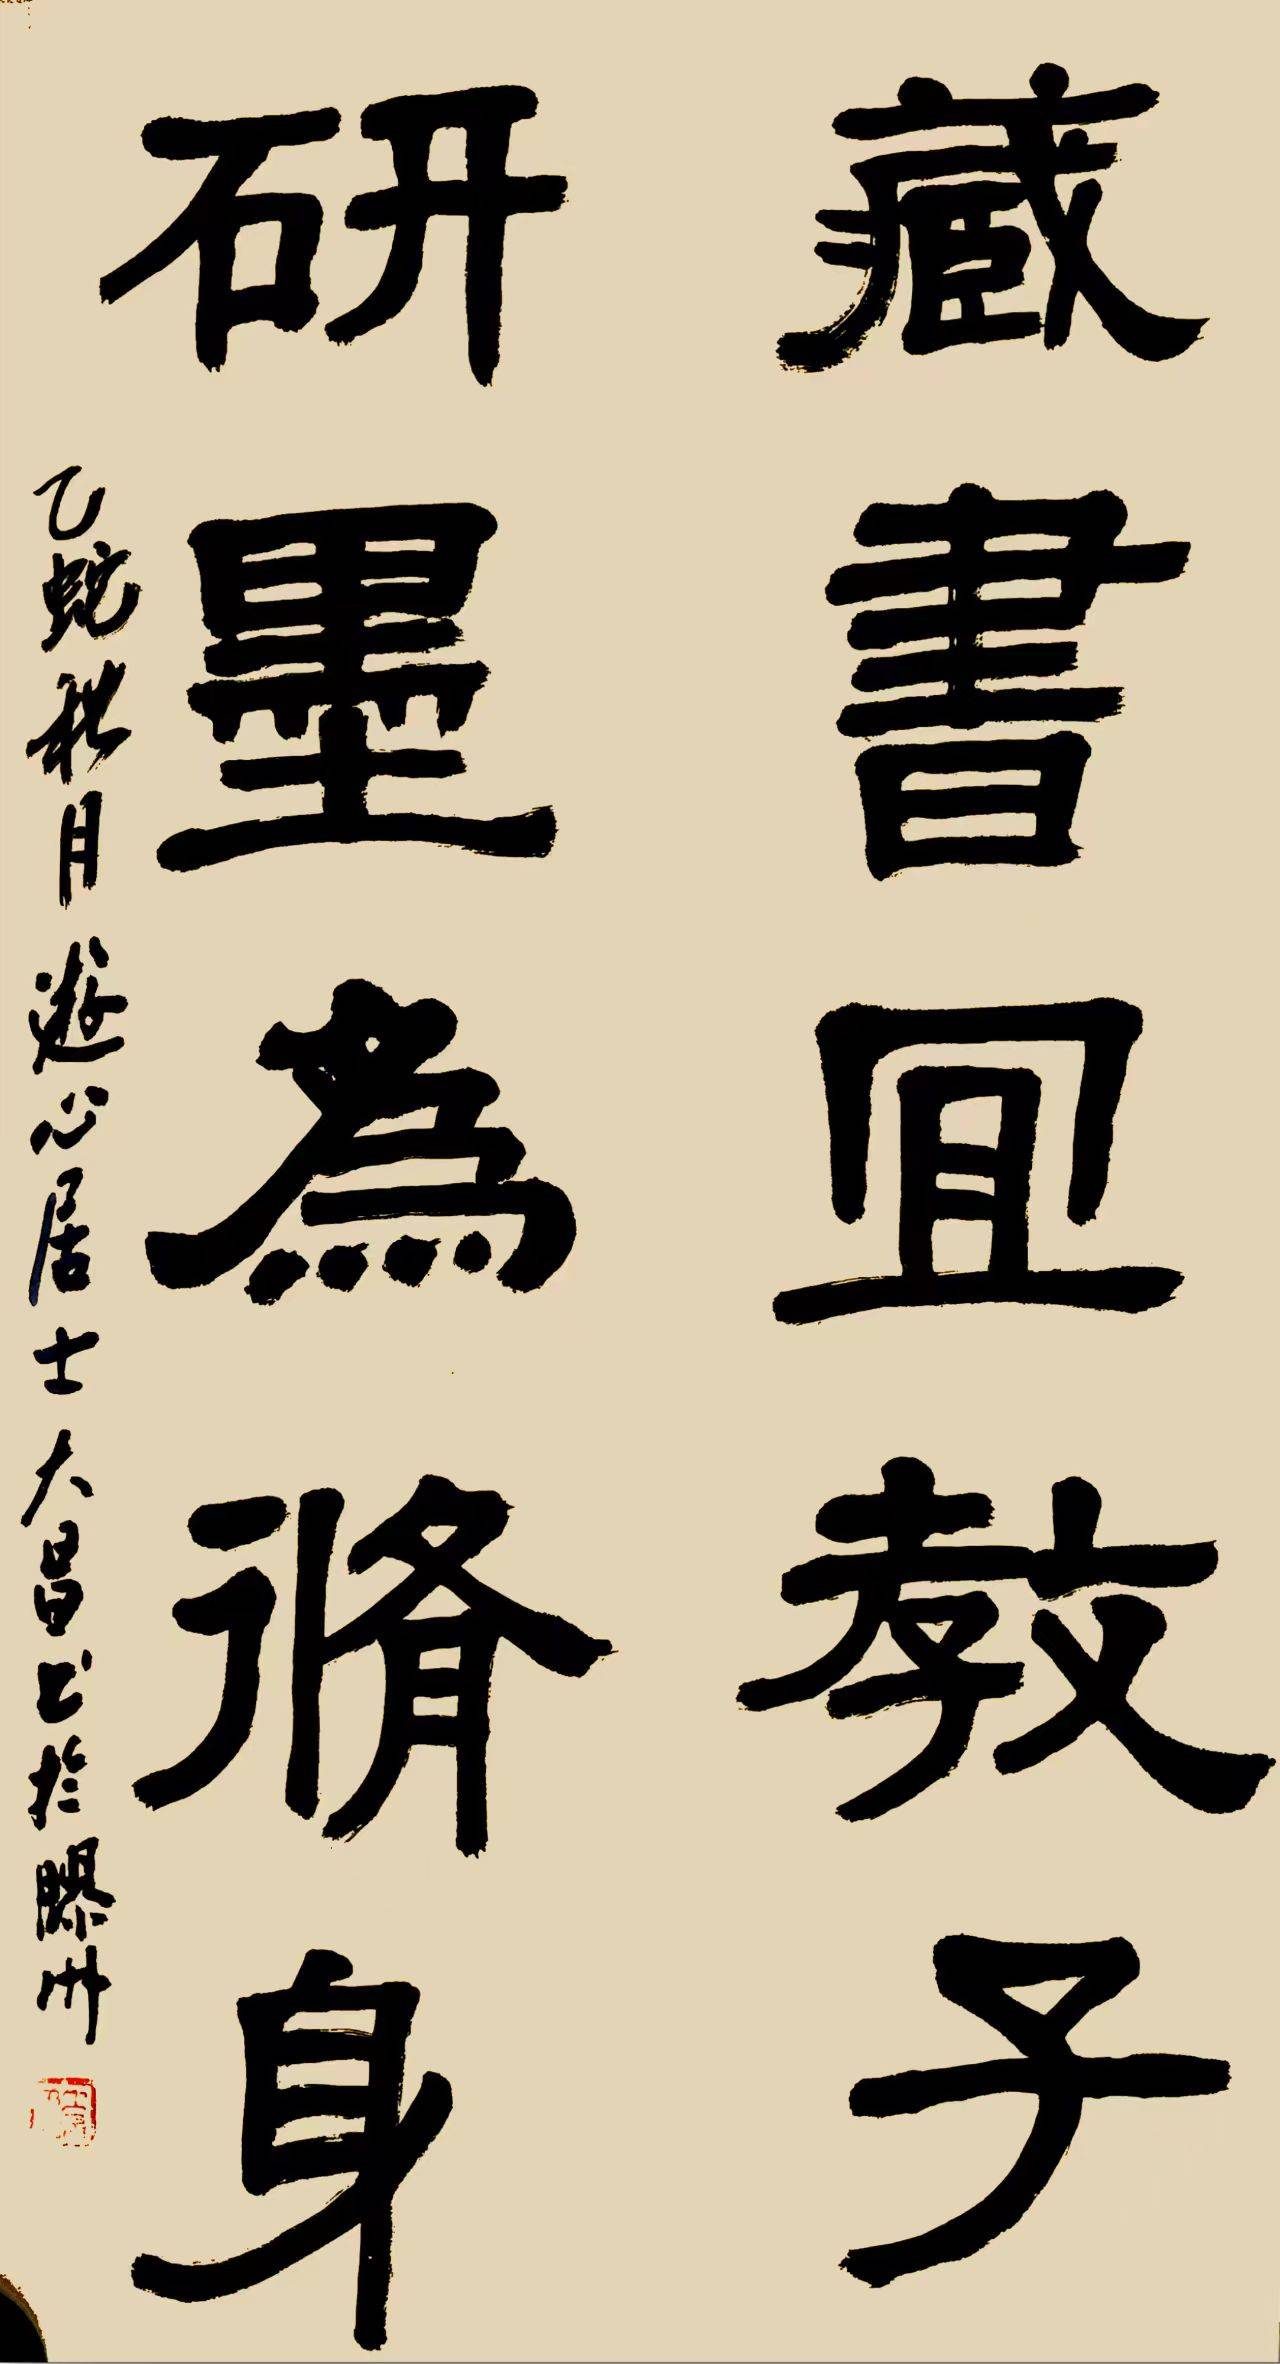 藏書宜教子
研墨為脩身
乙蛇秋月遊心居士大昌书於深州